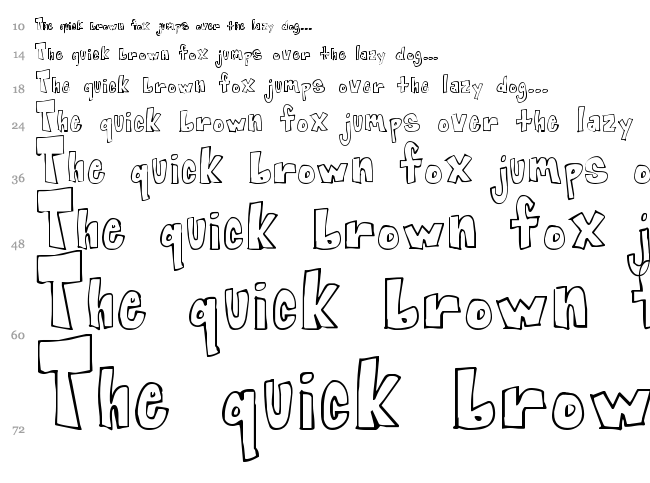 10 The quick brown fox jumps over the lazy dog...
14 The quick brown fox jumps over the lazy dog...
18 The quick brown fox jumps over the lazy dog...
24 The quick brown fox jumps over the lazy
36 The quick brown fox jumps o
48 The quick brown fox j
60 The quick brown f
72 The quick brow